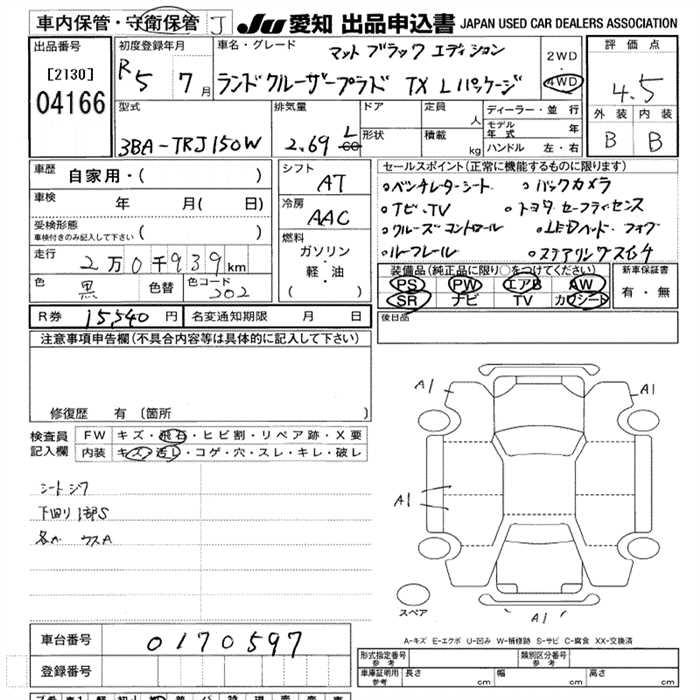 車内保管・守衛保管 J JU 愛知 出品申込書 JAPAN USED CAR DEALERS ASSOCIATION
出品番号 初度登録年月 車名・グレード マットブラックエディション 2WD 評価点
[2130] R5 7月 ランドクルーザープラド TX Lパッケージ 4WD 4.5
04166 型式 排気量 ドア 定員 人 ディーラー・並行 外装 内装
3BA-TRJ150W 2.69 L cc 形状 積載 kg モデル年式 年 B B
ハンドル 左・右
車歴 自家用・( ) シフト AT セールスポイント(正常に機能するものに限ります)
車検 年 月( 日) 冷房 AAC ・ベンチレーターシート ・バックカメラ
受検形態 車検付きのみ記入して下さい ( ) ・ナビ・TV ・トヨタセーフティセンス
燃料 ガソリン ・軽・油 ( ) ・クルーズコントロール ・LEDヘッド・フォグ
走行 2万0千939km ・ルーフレール ・ステアリングスイッチ
色 黒 色替 色コード 202 装備品(純正品に限り○をつけてください) 新車保証書
PS PW エアB AW 有・無
SR ナビ TV カワシート
R券 15540円 名変通知期限 月 日 後日品
注意事項申告欄(不具合内容等は具体的に記入して下さい)
修復歴 有 (箇所
検査員記入欄 FW キズ・飛石・ヒビ割・リペア跡・X要
内装 キズ・汚レ・コゲ・穴・スレ・キレ・破レ
シートシワ
下回り1部S
各ヘ ウスA
A1 A1
A1
A1
スペア
A-キズ E-エクボ U-凹み W-補修跡 S-サビ C-腐食 XX-交換済
車台番号 0170597
登録番号
形式指定番号 参考 類別区分番号 参考
車庫証明用 参考 長さ cm 幅 cm 高さ cm